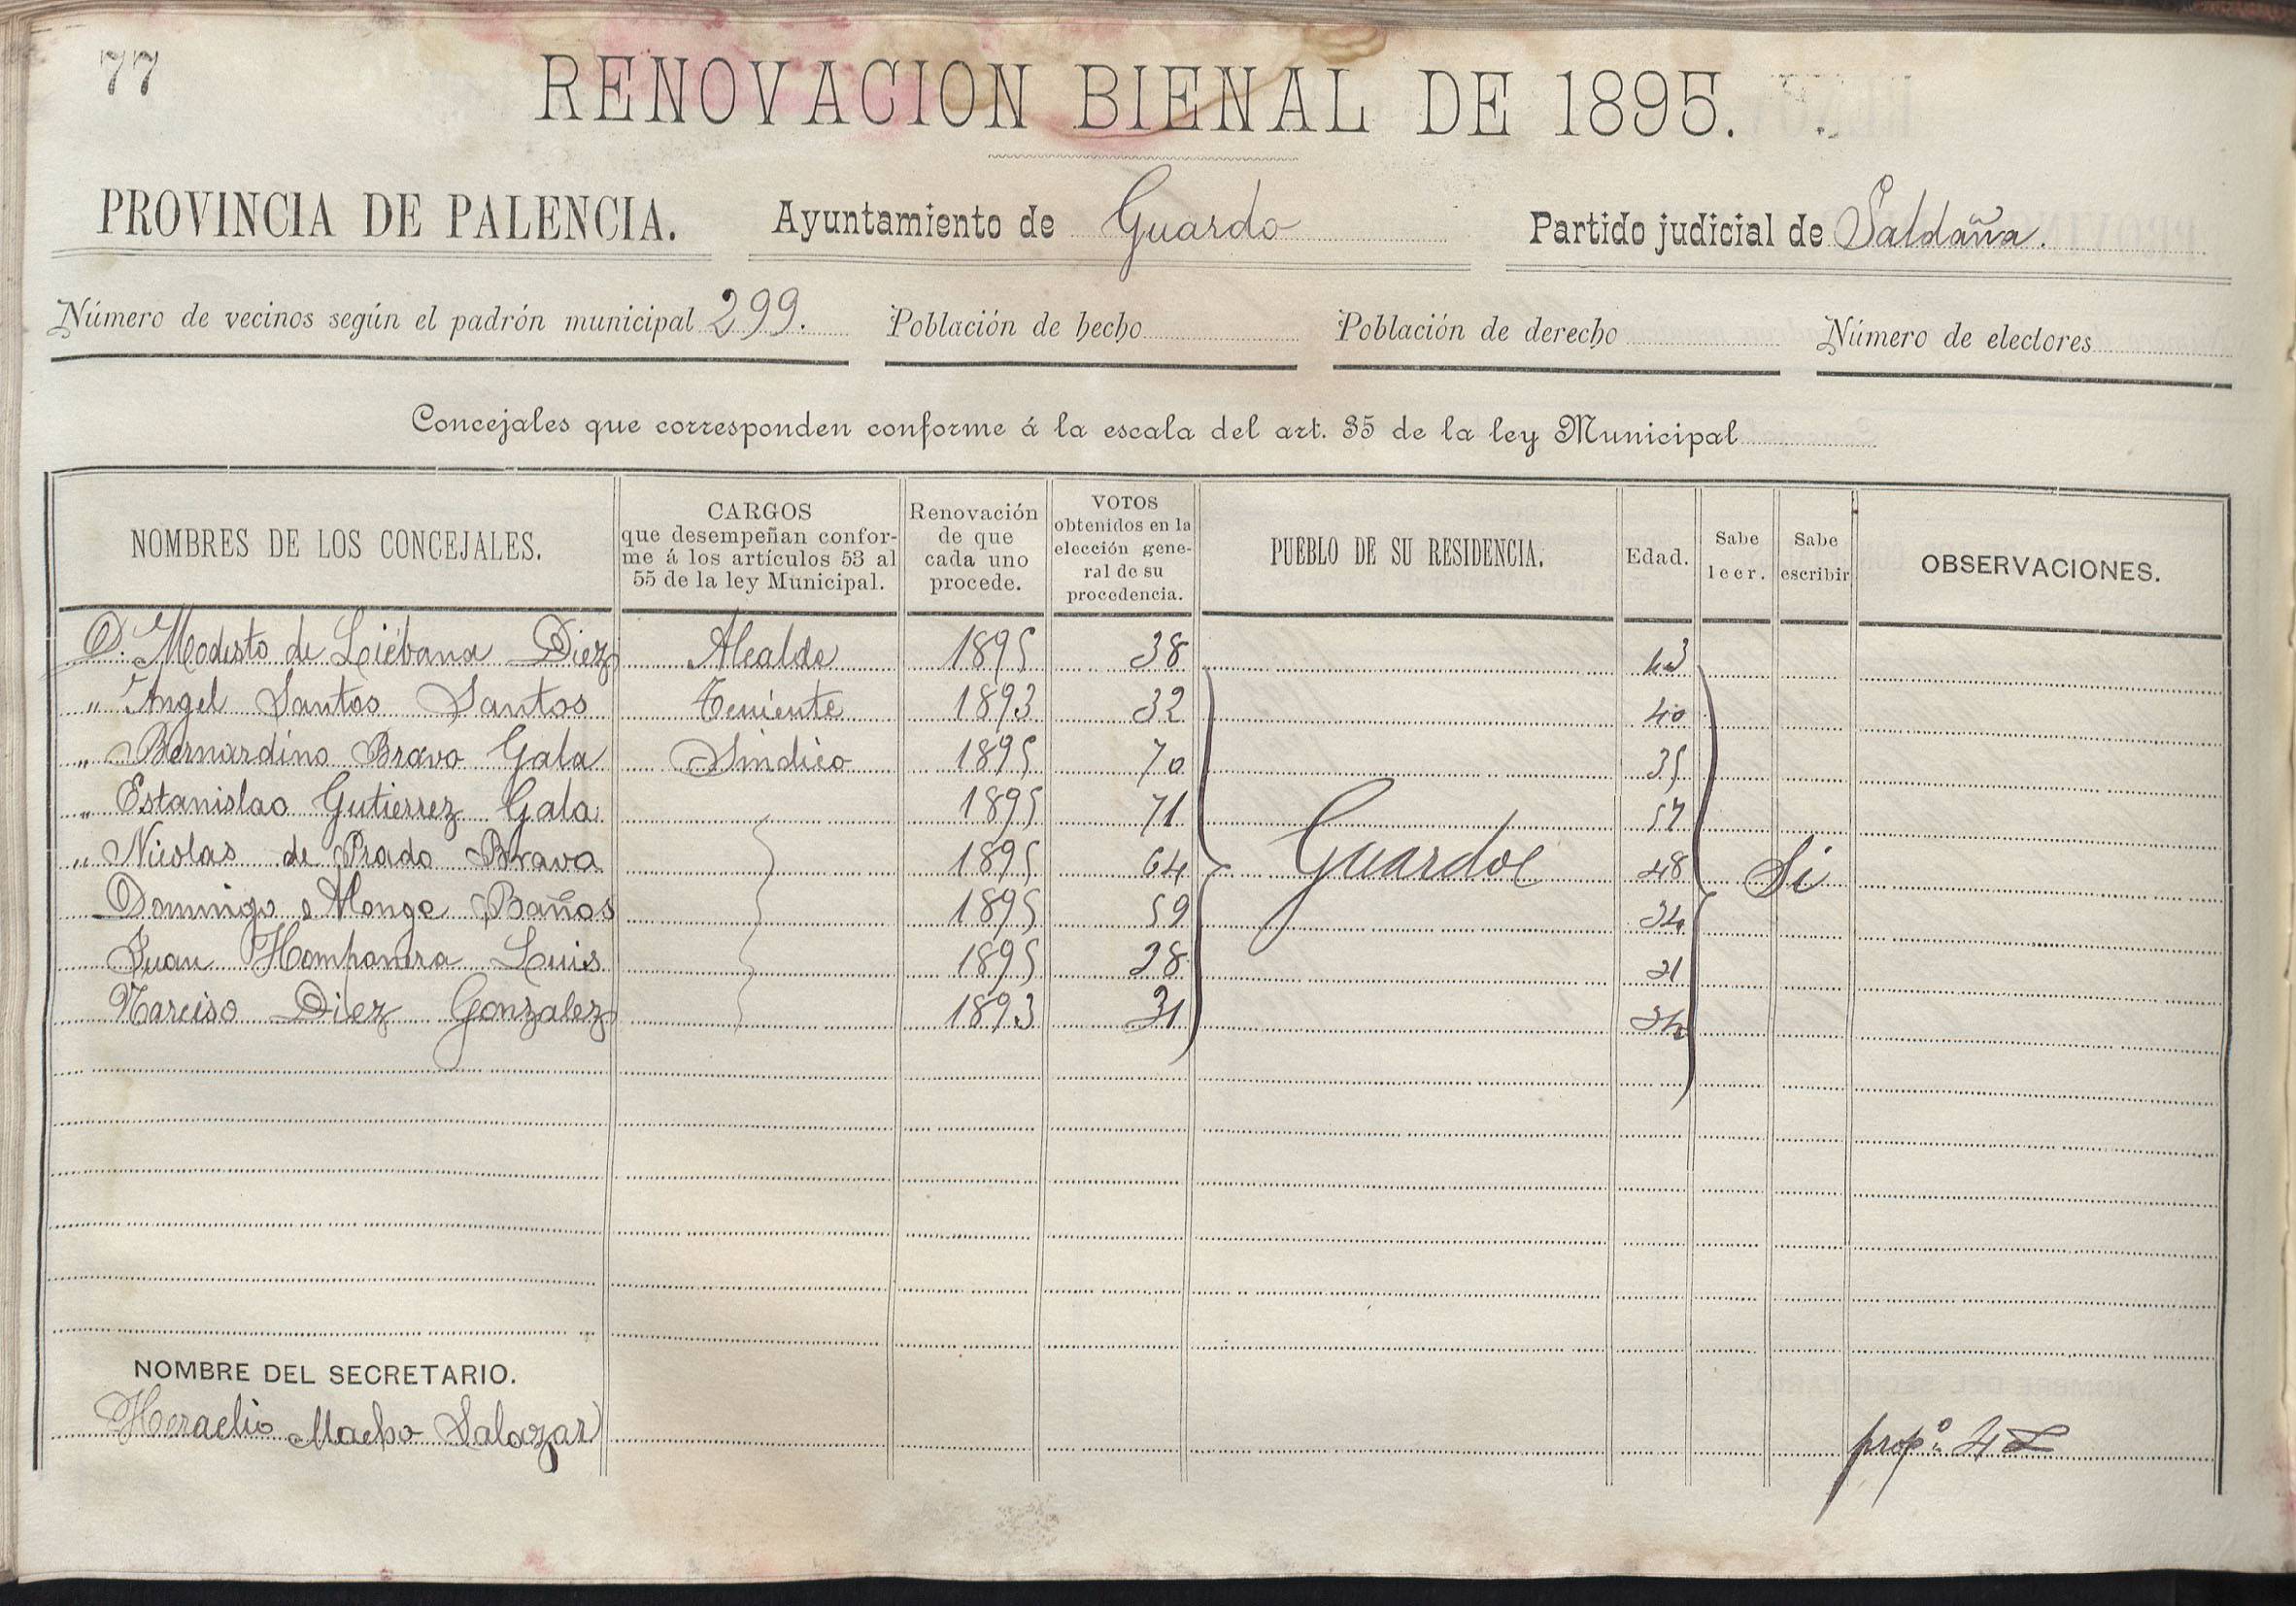 77
RENOVACION BIENAL DE 1895.
PROVINCIA DE PALENCIA. Ayuntamiento de Guardo Partido judicial de Saldaña.
Número de vecinos según el padrón municipal 299. Población de hecho Población de derecho Número de electores
Concejales que corresponden conforme á la escala del art. 35 de la ley Municipal
NOMBRES DE LOS CONCEJALES. CARGOS que desempeñan confor-me á los artículos 53 al 55 de la ley Municipal. Renovación de que cada uno procede. VOTOS obtenidos en la elección gene-ral de su procedencia. PUEBLO DE SU RESIDENCIA. Edad. Sabe leer. Sabe escribir OBSERVACIONES.
D. Modesto de Liébana Diez Alcalde 1895 38 43
" Angel Santos Santos Teniente 1893 32 40
" Bernardino Bravo Gala Sindico 1895 70 35
" Estanislao Gutierrez Gala 1895 71 57
" Nicolas de Prado Bravo 1895 64 Guardo 48 Si
Domingo Monge Baños 1895 59 34
Juan Hompanera Luis 1895 28 31
Narciso Diez Gonzalez 1893 31
NOMBRE DEL SECRETARIO.
Heraclio Macho Salazar
prop.º 4